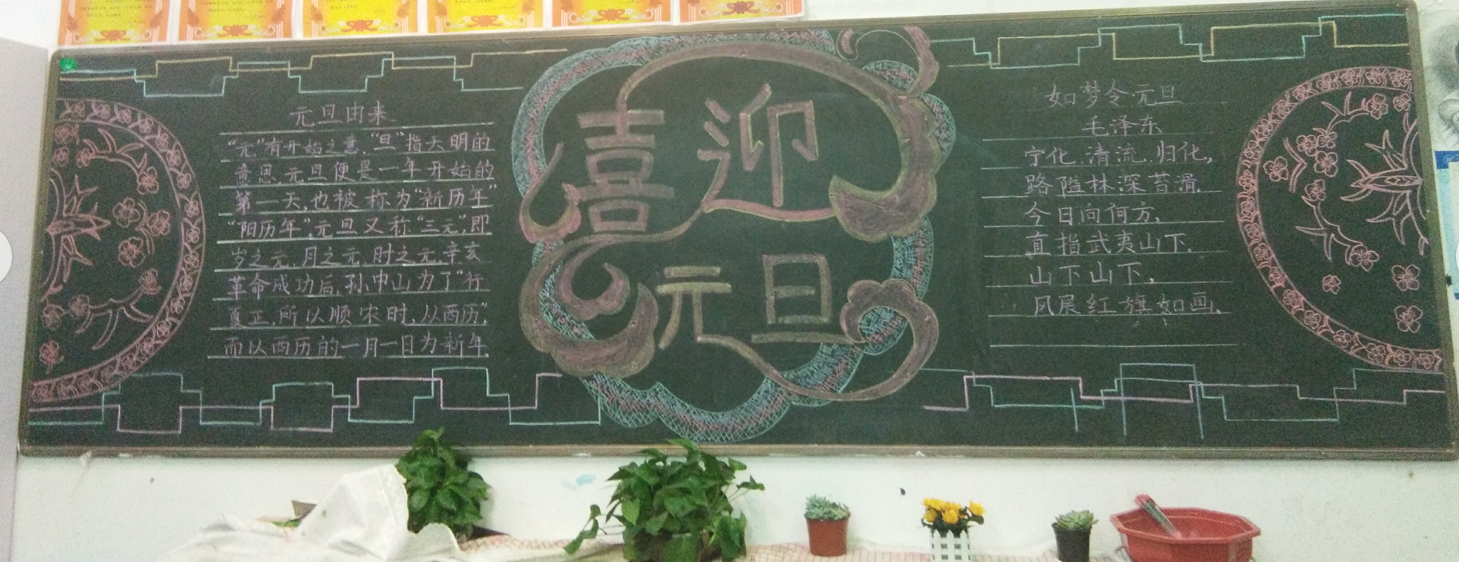 元旦由来
"元"有开始之意,"旦"指天明的
意思.元旦便是一年开始的
第一天,也被称为"新历年"
"阳历年".元旦又称"三元",即
岁之元,月之元,时之元.辛亥
革命成功后,孙中山为了"行
夏正,所以顺农时,从西历",
而以西历的一月一日为新年
喜迎
元旦
如梦令·元旦
毛泽东
宁化、清流、归化,
路隘林深苔滑.
今日向何方,
直指武夷山下.
山下山下,
风展红旗如画.